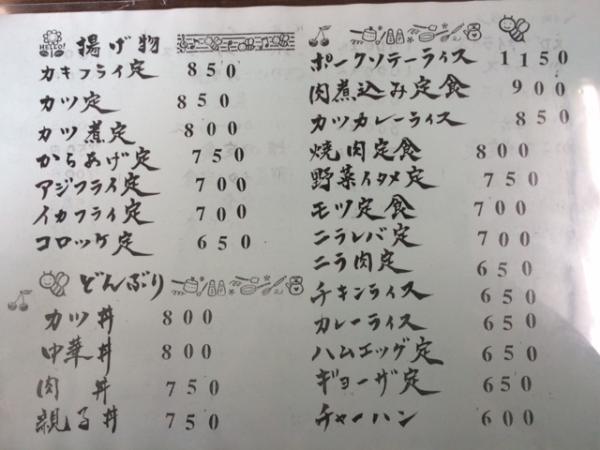 HELLO! 揚げ物
カキフライ定 850
カツ定 850
カツ煮定 800
からあげ定 750
アジフライ定 700
イカフライ定 700
コロッケ定 650
どんぶり
カツ丼 800
中華丼 800
肉丼 750
親子丼 750
ポークソテーライス 1150
肉煮込み定食 900
カツカレーライス 850
焼肉定食 800
野菜イタメ定 750
モツ定食 700
ニラレバ定 700
ニラ肉定 650
チキンライス 650
カレーライス 650
ハムエッグ定 650
ギョーザ定 650
チャーハン 600